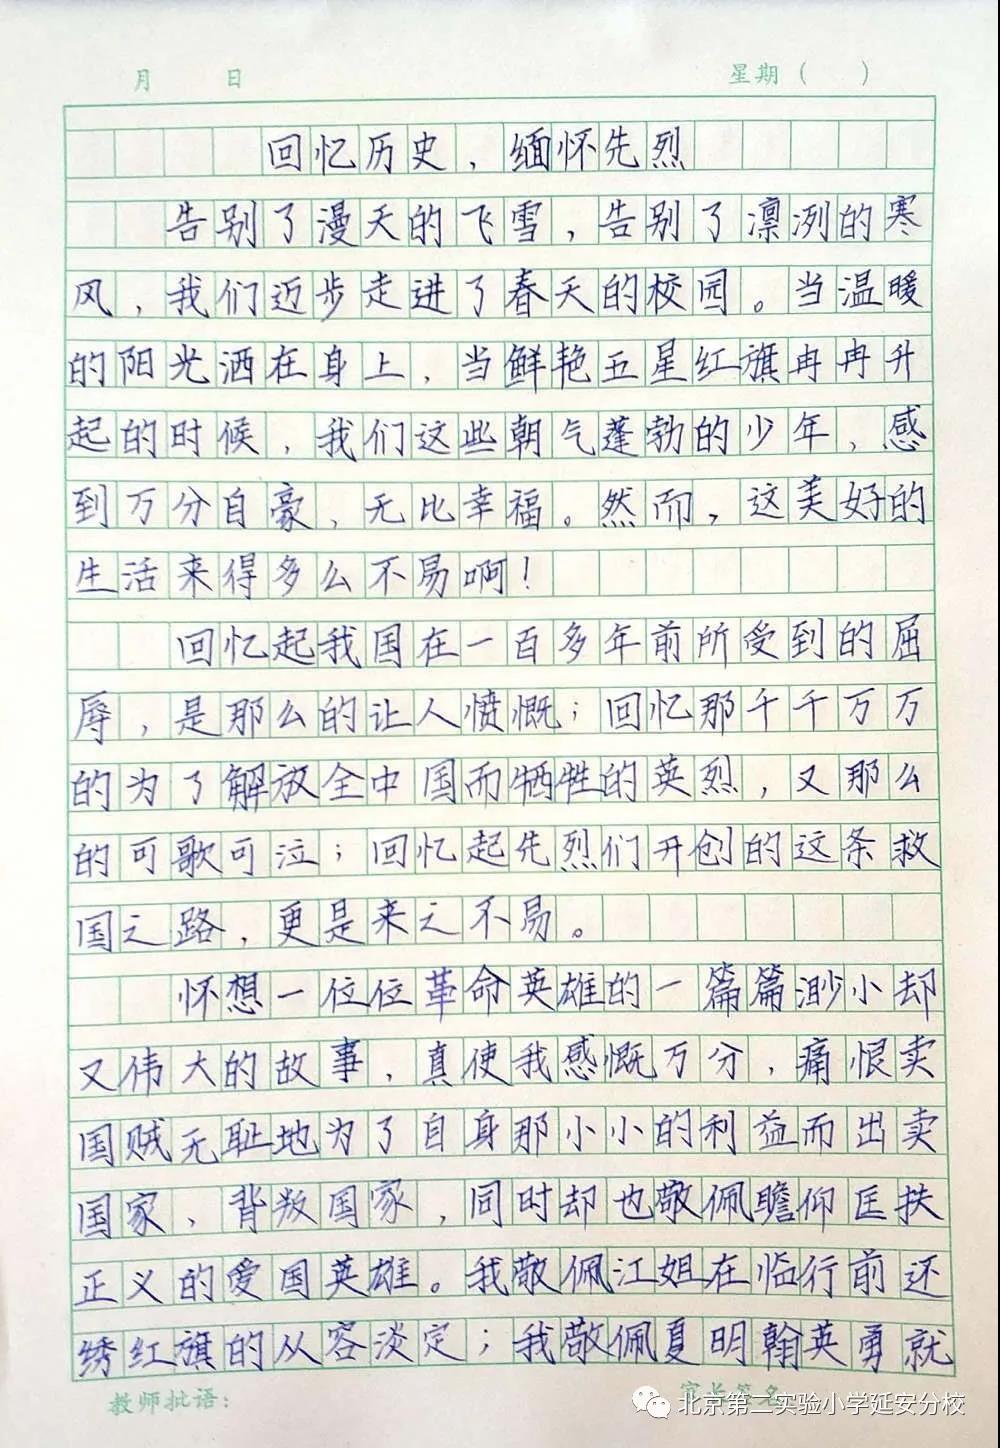 月 日 星期（ ）
回忆历史，缅怀先烈
告别了漫天的飞雪，告别了凛冽的寒
风，我们迈步走进了春天的校园。当温暖
的阳光洒在身上，当鲜艳五星红旗冉冉升
起的时候，我们这些朝气蓬勃的少年，感
到万分自豪，无比幸福。然而，这美好的
生活来得多么不易啊！
回忆起我国在一百多年前所受到的屈
辱，是那么的让人愤慨；回忆那千千万万
的为了解放全中国而牺牲的英烈，又那么
的可歌可泣；回忆起先烈们开创的这条救
国之路，更是来之不易。
怀想一位位革命英雄的一篇篇渺小却
又伟大的故事，真使我感慨万分，痛恨卖
国贼无耻地为了自身那小小的利益而出卖
国家，背叛国家，同时却也敬佩瞻仰匡扶
正义的爱国英雄。我敬佩江姐在临行前还
绣红旗的从容淡定；我敬佩夏明翰英勇就
教师批语： 家长签名
北京第二实验小学延安分校